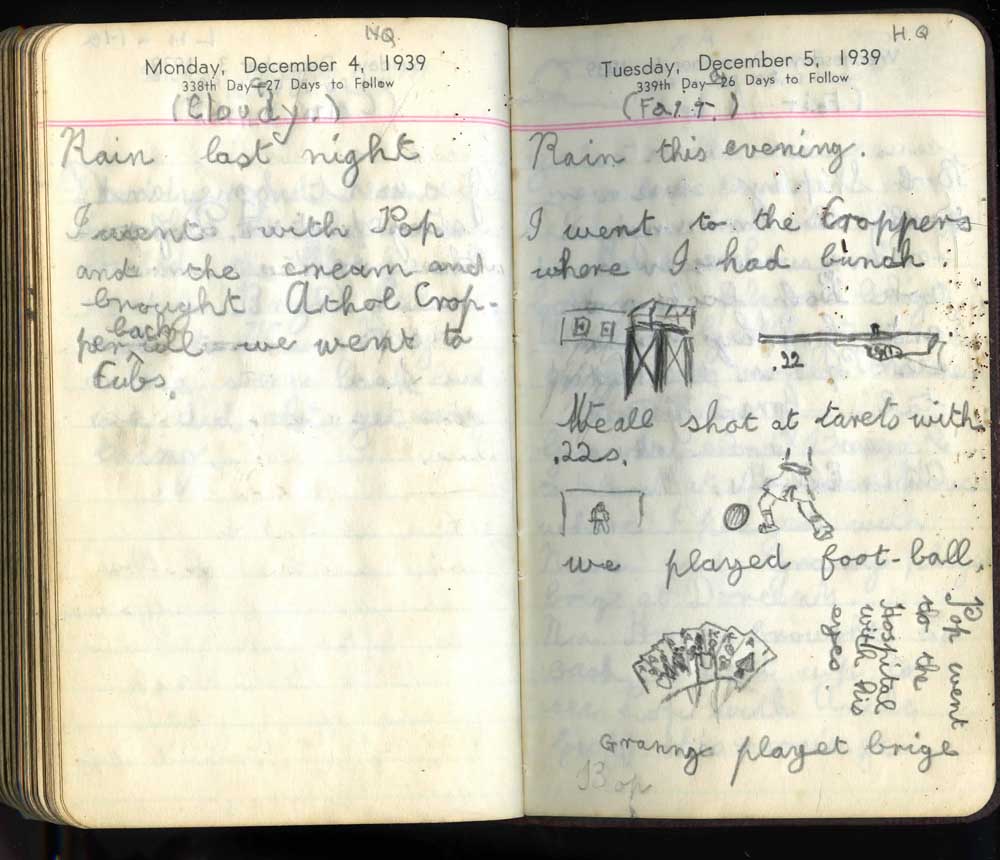 H.Q.
Monday, December 4, 1939
338th Day—27 Days to Follow
(Cloudy.)
Rain last night
I went with Pop
and the cream and
brought Athol Crop-
per back we went to
Cubs.
H.Q
Tuesday, December 5, 1939
339th Day—26 Days to Follow
(Fair.)
Rain this evening.
I went to the Croppers
where I had lunch.
.22
We all shot at tarets with
.22s.
we played foot-ball.
Pop went
to the
Hospital
with his
eyes.
Granny playet brige
Pop